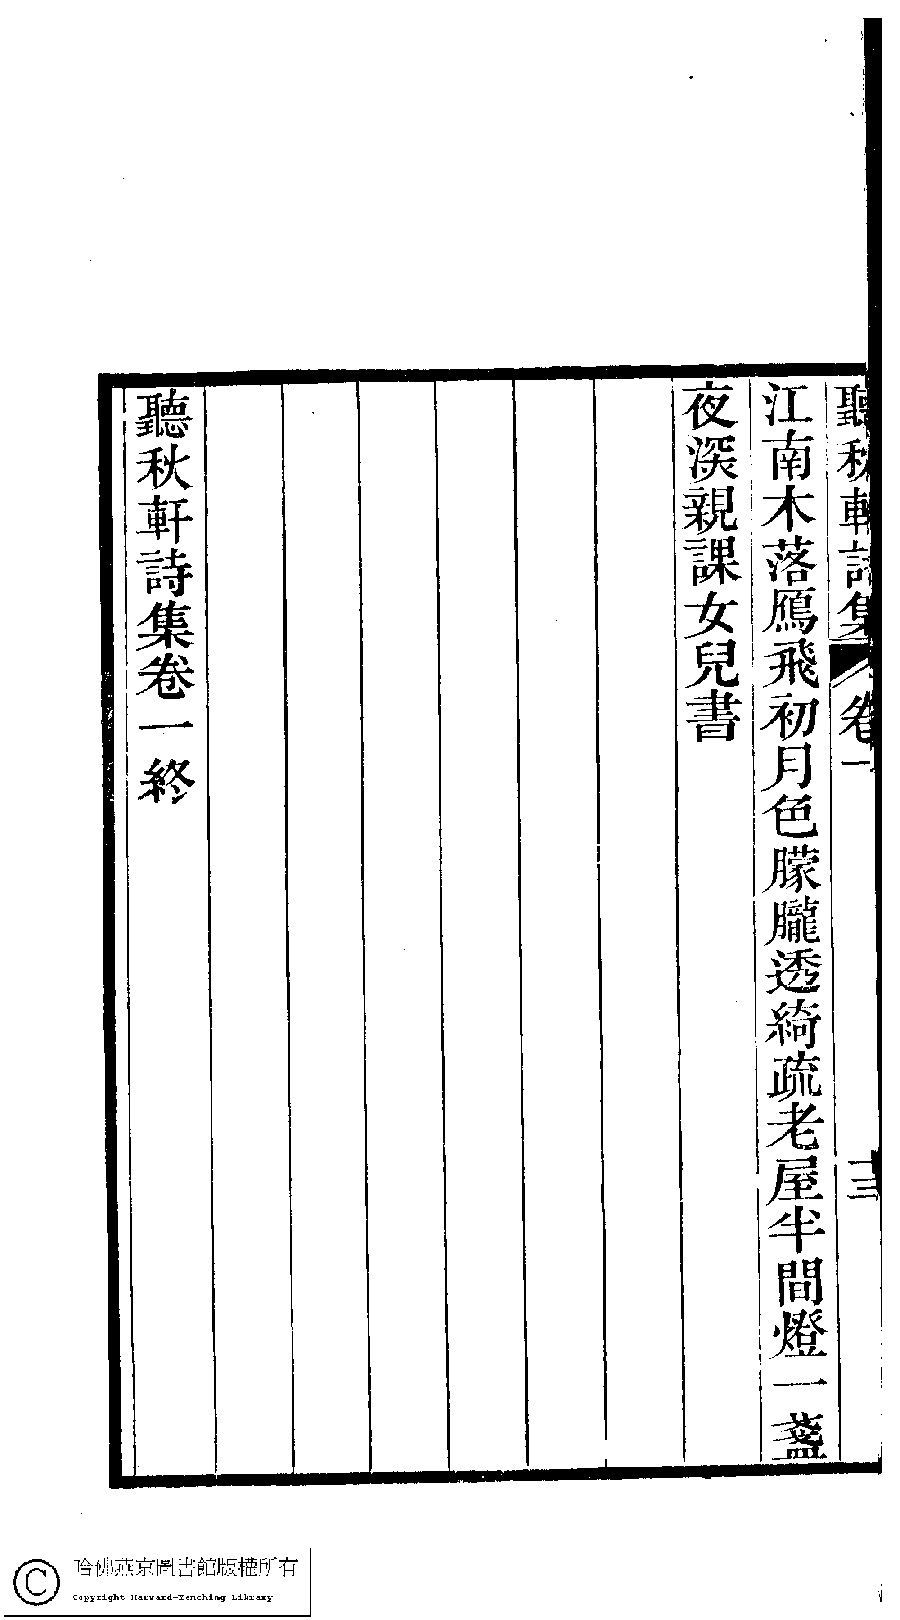 聽秋軒詩集 卷一 三
江南木落鴈飛初月色朦朧透綺疏老屋半間燈一盞
夜深親課女兒書
聽秋軒詩集卷一終
哈佛燕京圖書館版權所有
Copyright Harvard-Yenching Library